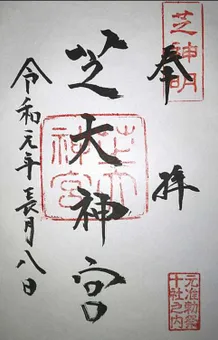 奉拝
芝神明
芝大神宮
芝大神宮
元准勅祭
十社之内
令和元年長月八日